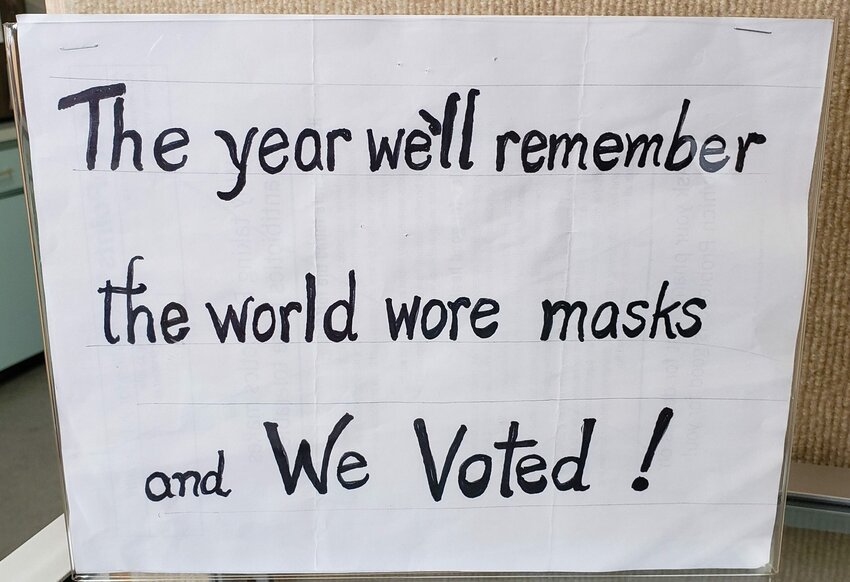 The year we'll remember
the world wore masks
and We Voted !